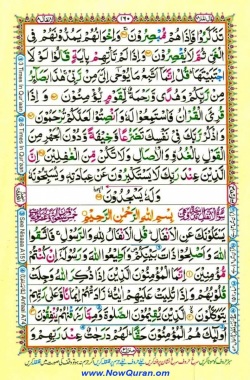 تَذَكَّرُوْا فَاِذَا هُمْ مُّبْصِرُوْنَ وَاِخْوَانُهُمْ يَمُدُّوْنَهُمْ فِى
الْغَىِّ ثُمَّ لَا يُقْصِرُوْنَ وَاِذَا لَمْ تَاْتِهِمْ بِاٰيَةٍ قَالُوْا لَوْ لَا
اجْتَبَيْتَهَا قُلْ اِنَّمَاۤ اَتَّبِعُ مَا يُوْحٰۤى اِلَىَّ مِنْ رَّبِّىْ هٰذَا بَصَآئِرُ
مِنْ رَّبِّكُمْ وَهُدًى وَّرَحْمَةٌ لِّقَوْمٍ يُّؤْمِنُوْنَ وَاِذَا
قُرِئَ الْقُرْاٰنُ فَاسْتَمِعُوْا لَهٗ وَاَنْصِتُوْا لَعَلَّكُمْ تُرْحَمُوْنَ
وَاذْكُرْ رَّبَّكَ فِىْ نَفْسِكَ تَضَرُّعًا وَّخِيْفَةً وَّدُوْنَ الْجَهْرِ مِنَ
الْقَوْلِ بِالْغُدُوِّ وَالْاٰصَالِ وَلَا تَكُنْ مِّنَ الْغٰفِلِيْنَ اِنَّ
الَّذِيْنَ عِنْدَ رَبِّكَ لَا يَسْتَكْبِرُوْنَ عَنْ عِبَادَتِهٖ وَيُسَبِّحُوْنَهٗ
وَلَهٗ يَسْجُدُوْنَ
بِسْمِ اللّٰهِ الرَّحْمٰنِ الرَّحِيْمِ
يَسْـَٔلُوْنَكَ عَنِ الْاَنْفَالِ قُلِ الْاَنْفَالُ لِلّٰهِ وَالرَّسُوْلِ فَاتَّقُوا
اللّٰهَ وَاَصْلِحُوْا ذَاتَ بَيْنِكُمْ وَاَطِيْعُوا اللّٰهَ وَرَسُوْلَهٗۤ اِنْ كُنْتُمْ
مُّؤْمِنِيْنَ اِنَّمَا الْمُؤْمِنُوْنَ الَّذِيْنَ اِذَا ذُكِرَ اللّٰهُ وَجِلَتْ
قُلُوْبُهُمْ وَاِذَا تُلِيَتْ عَلَيْهِمْ اٰيٰتُهٗ زَادَتْهُمْ اِيْمَانًا وَّعَلٰى
رَبِّهِمْ يَتَوَكَّلُوْنَ الَّذِيْنَ يُقِيْمُوْنَ الصَّلٰوةَ وَمِمَّا رَزَقْنٰهُمْ يُنْفِقُوْنَ
اُولٰٓئِكَ هُمُ الْمُؤْمِنُوْنَ حَقًّا لَهُمْ دَرَجٰتٌ عِنْدَ رَبِّهِمْ وَ
www.NowQuran.com